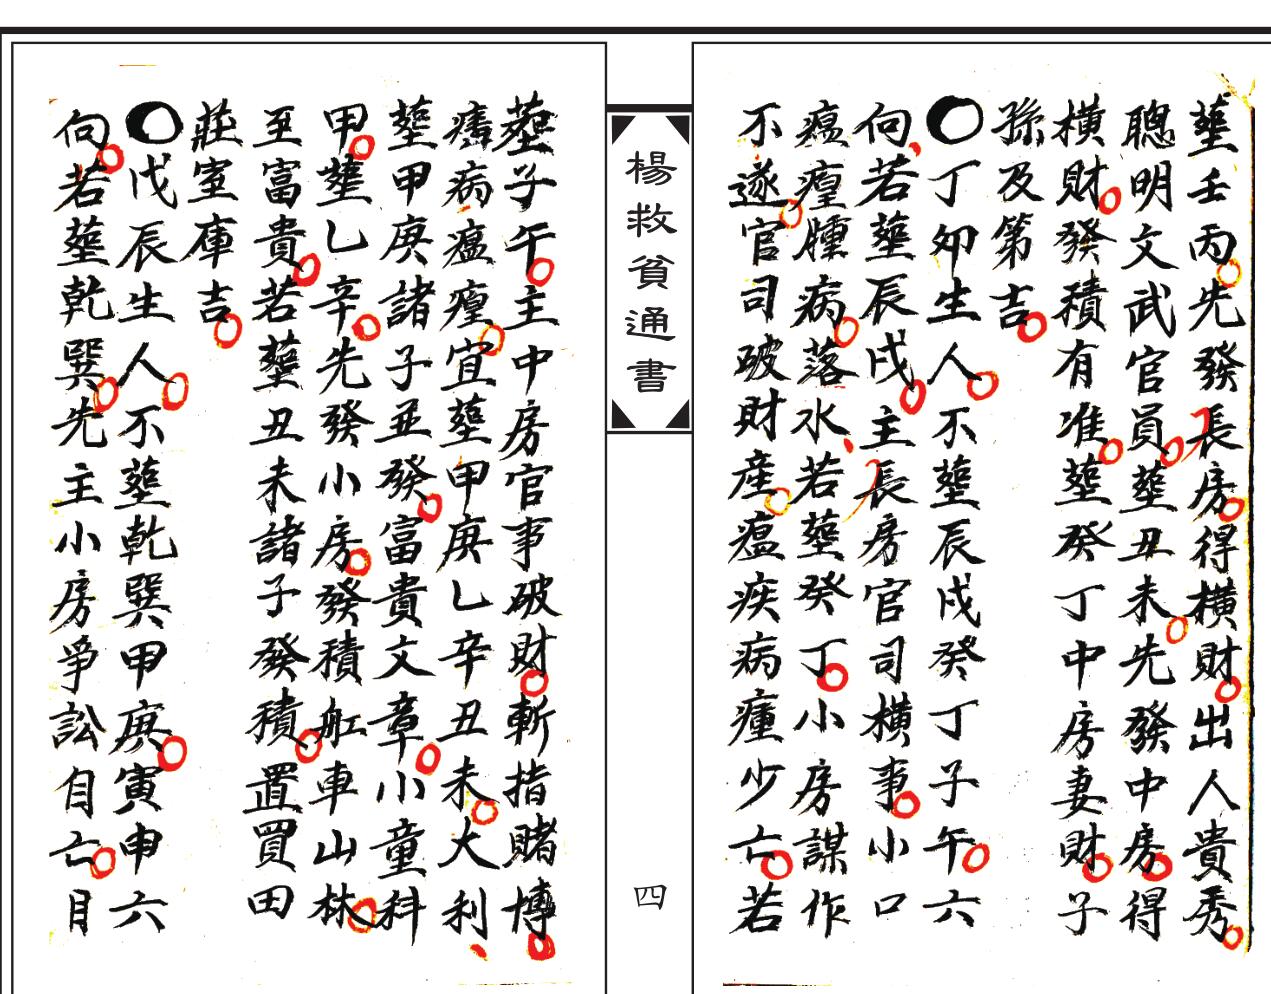 葬壬丙先發長房得橫財出人貴秀
聰明文武官員葬丑未先發中房得
橫財發積有准葬癸丁中房妻財子
孫及第吉
〇丁卯生人不葬辰戌癸丁子午六
向若葬辰戌主長房官司橫事小口
瘟瘽腫病落水若葬癸丁小房謀作
不遂官司破財產瘟疾病瘇少亡若
楊救貧通書
四
葬子午主中房官事破財斬指賭博
病瘟瘽宜葬甲庚乙辛丑未大利
葬甲庚諸子並發富貴文章小童科
甲葬乙辛先發小房發積舡車山林
至富貴若葬丑未諸子發積置買田
莊室庫吉
〇戊辰生人不葬乾巽甲庚寅申六
向若葬乾巽先主小房爭訟自亡月